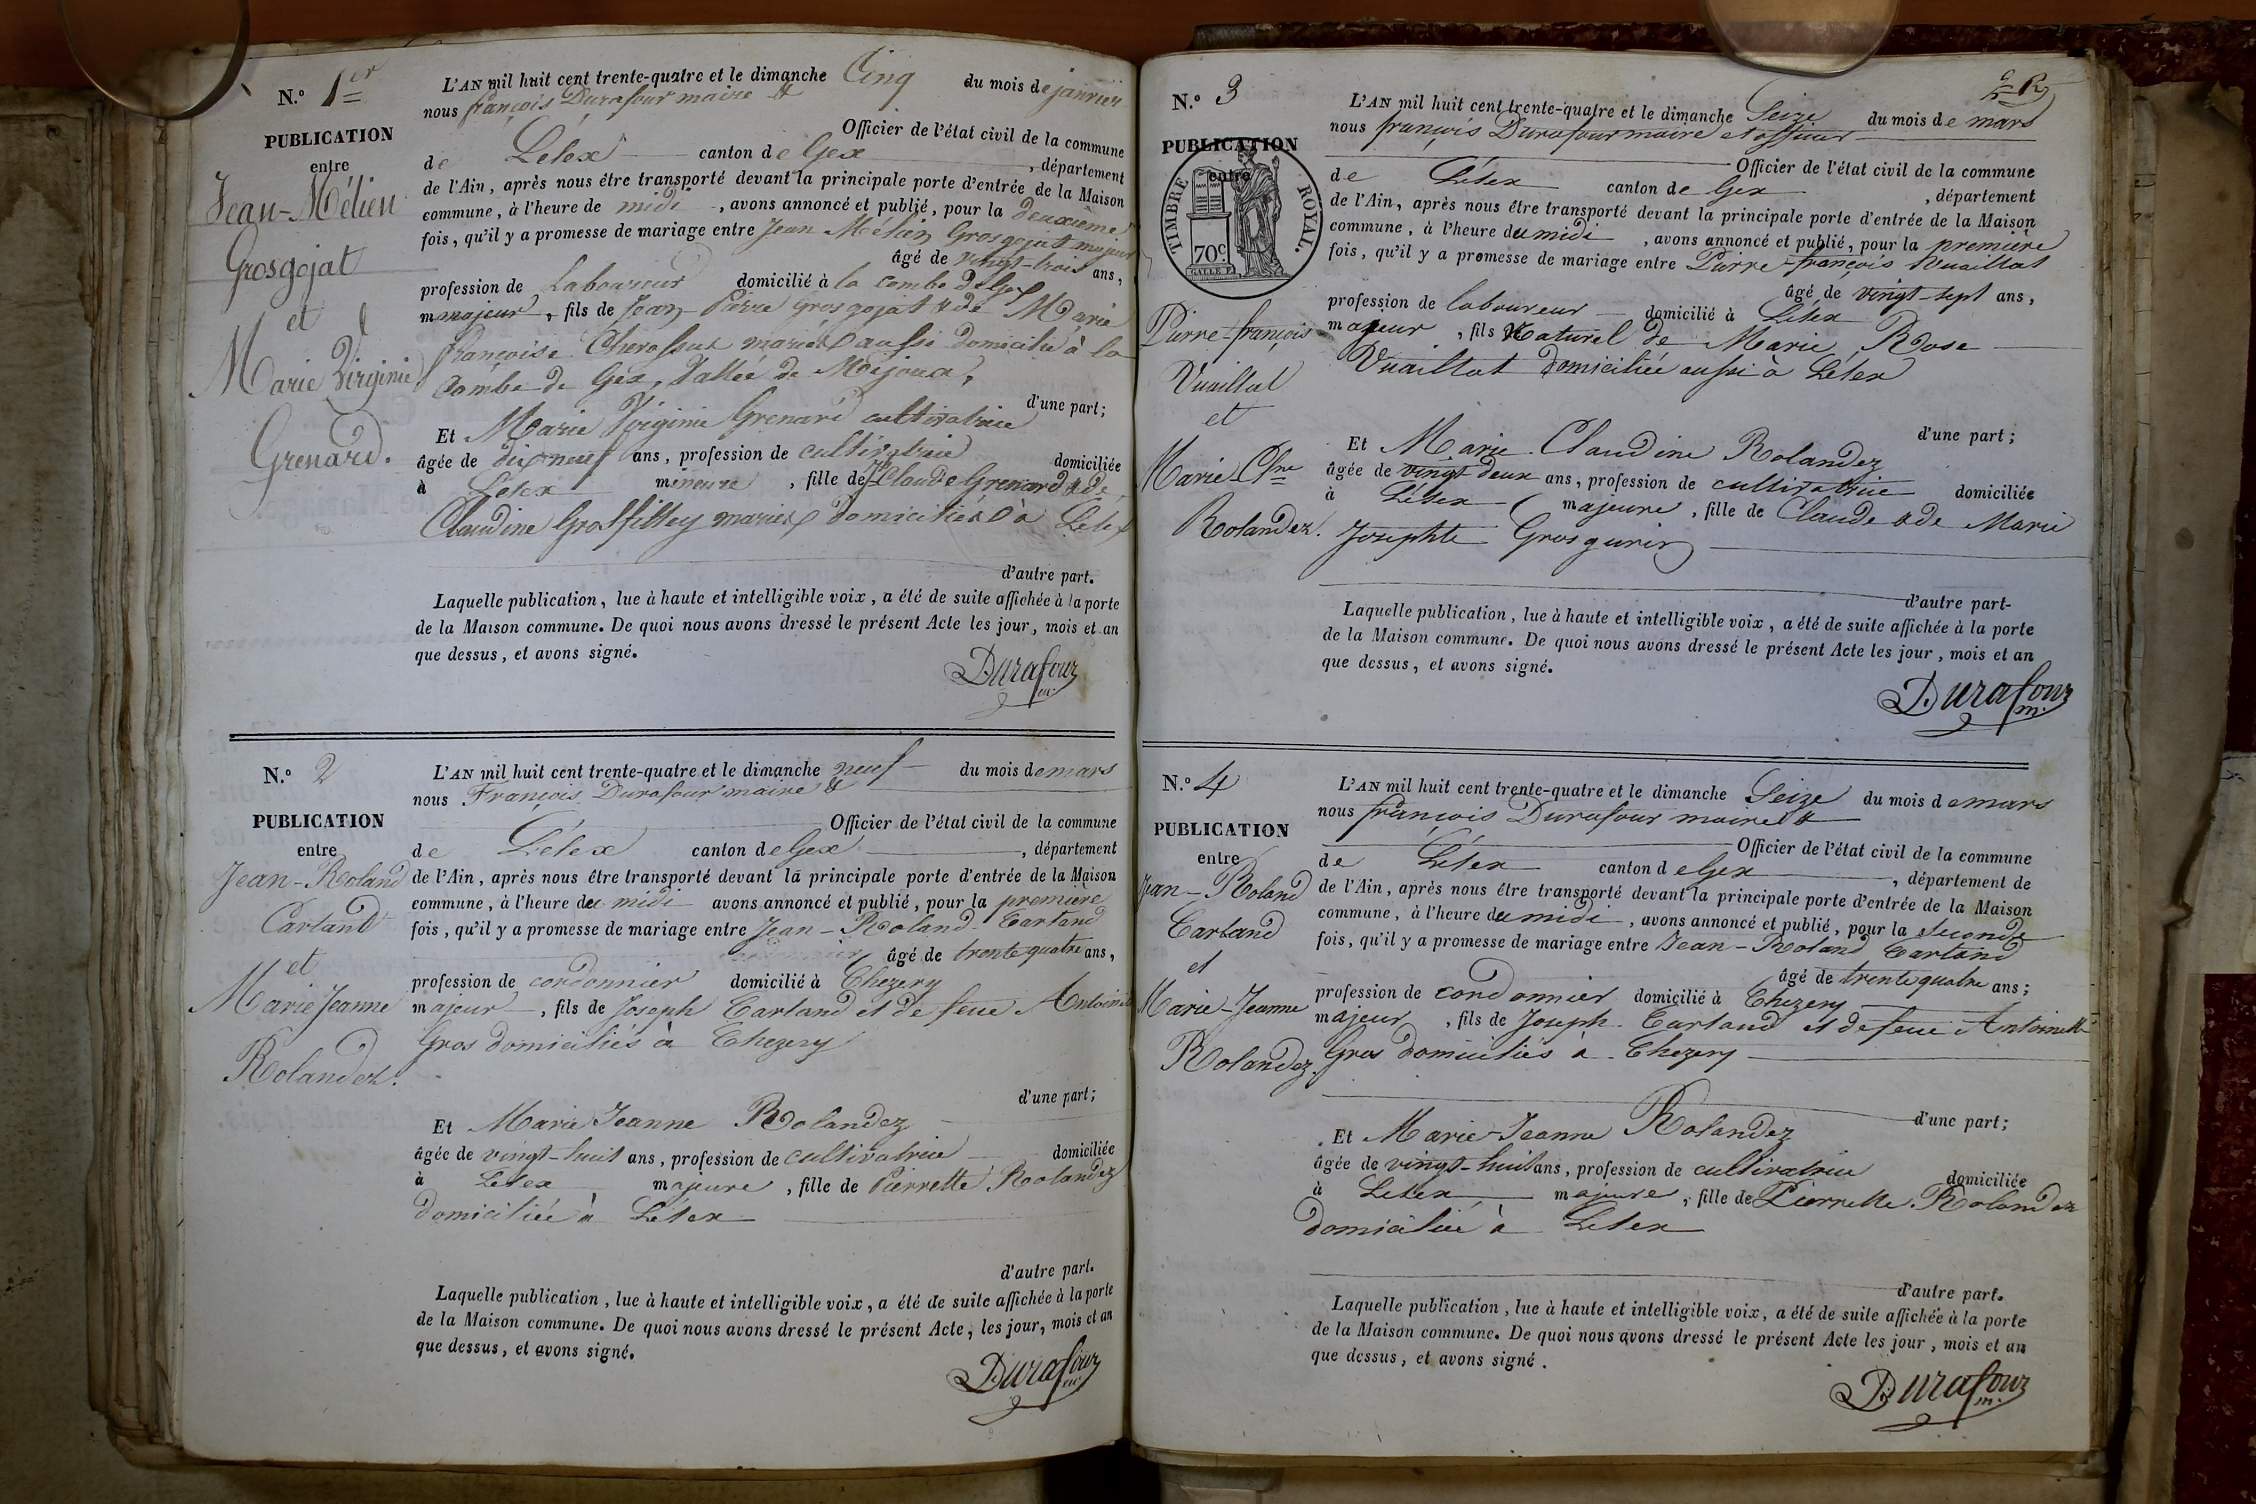 N.° 1er
PUBLICATION
entre
Jean-Mélien
Grosgojat
et
Marie Virginie
Grenard.
L'AN mil huit cent trente-quatre et le dimanche Cinq du mois de janvier
nous françois Durafour maire &
Officier de l'état civil de la commune
de Lélex canton de Gex , département
de l'Ain, après nous être transporté devant la principale porte d'entrée de la Maison
commune, à l'heure de midi , avons annoncé et publié, pour la deuxième
fois, qu'il y a promesse de mariage entre Jean Mélien Grosgojat majeur
âgé de vingt-trois ans,
profession de Laboureur domicilié à la combe de Gex
majeur, fils de Jean Pierre Grosgojat & de Marie
françoise mariés aussi domicilié à la
Combe de Gex, Vallée de Mijoux,
d'une part;
Et Marie Virginie Grenard cultivatrice
âgée de dix neuf ans, profession de cultivatrice domiciliée
à Lélex mineure , fille de Jh Claude Grenard & de
Claudine Grosfilley mariés domiciliés à Lélex
d'autre part.
Laquelle publication, lue à haute et intelligible voix, a été de suite affichée à la porte
de la Maison commune. De quoi nous avons dressé le présent Acte les jour, mois et an
que dessus, et avons signé.
Durafour
m.
N.° 2
PUBLICATION
entre
Jean-Roland
Cartand
et
Marie Jeanne
Rolandez.
L'AN mil huit cent trente-quatre et le dimanche neuf du mois de mars
nous François Durafour maire &
Officier de l'état civil de la commune
de Lélex canton de Gex , département
de l'Ain, après nous être transporté devant la principale porte d'entrée de la Maison
commune, à l'heure de midi avons annoncé et publié, pour la première
fois, qu'il y a promesse de mariage entre Jean-Roland Cartand
âgé de trente quatre ans,
profession de cordonnier domicilié à Chezery
majeur , fils de Joseph Cartand et de feue Antoinette
Gros domiciliés à Chezery
d'une part;
Et Marie Jeanne Rolandez
âgée de vingt-huit ans, profession de cultivatrice domiciliée
à Lélex majeure , fille de Pierrette Rolandez
domiciliée à Lélex
d'autre part.
Laquelle publication, lue à haute et intelligible voix, a été de suite affichée à la porte
de la Maison commune. De quoi nous avons dressé le présent Acte, les jour, mois et an
que dessus, et avons signé.
Durafour
m.
N.° 3
PUBLICATION
entre
TIMBRE ROYAL.
70c
Pierre-françois
Vuaillat
et
Marie Cne
Rolandez.
L'AN mil huit cent trente-quatre et le dimanche Seize du mois de mars
nous françois Durafour maire et officier
Officier de l'état civil de la commune
de Lélex canton de Gex , département
de l'Ain, après nous être transporté devant la principale porte d'entrée de la Maison
commune, à l'heure du midi , avons annoncé et publié, pour la première
fois, qu'il y a promesse de mariage entre Pierre-françois Vuaillat
âgé de vingt-sept ans,
profession de laboureur domicilié à Lélex
majeur , fils Naturel de Marie Rose
Vuaillat domiciliée aussi à Lélex
d'une part;
Et Marie Claudine Rolandez
âgée de vingt deux ans, profession de cultivatrice domiciliée
à Lélex majeure , fille de Claude & de Marie
Josephte Grosgurin
d'autre part-
Laquelle publication, lue à haute et intelligible voix, a été de suite affichée à la porte
de la Maison commune. De quoi nous avons dressé le présent Acte les jour, mois et an
que dessus, et avons signé.
Durafour
m.
N.° 4
PUBLICATION
entre
Jean-Roland
Cartand
et
Marie-Jeanne
Rolandez.
L'AN mil huit cent trente-quatre et le dimanche Seize du mois de mars
nous françois Durafour maire &
Officier de l'état civil de la commune
de Lélex canton de Gex , département de
de l'Ain, après nous être transporté devant la principale porte d'entrée de la Maison
commune, à l'heure du midi , avons annoncé et publié, pour la seconde
fois, qu'il y a promesse de mariage entre Jean-Roland Cartand
âgé de trente quatre ans;
profession de cordonnier domicilié à Chezery
majeur , fils de Joseph Cartand et de feue Antoinette
Gros domiciliés à Chezery
d'une part;
Et Marie-Jeanne Rolandez
âgée de vingt-huit ans, profession de cultivatrice domiciliée
à Lélex majeure , fille de Pierrette Rolandez
domiciliée à Lélex
d'autre part.
Laquelle publication, lue à haute et intelligible voix, a été de suite affichée à la porte
de la Maison commune. De quoi nous avons dressé le présent Acte les jour, mois et an
que dessus, et avons signé.
Durafour
m.